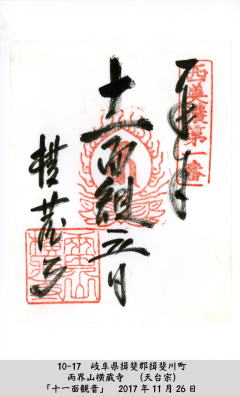 西美濃第一番
奉拝
十一面観音
横蔵寺
両界山
10-17 岐阜県揖斐郡揖斐川町
両界山横蔵寺 (天台宗)
「十一面観音」 2017年11月26日